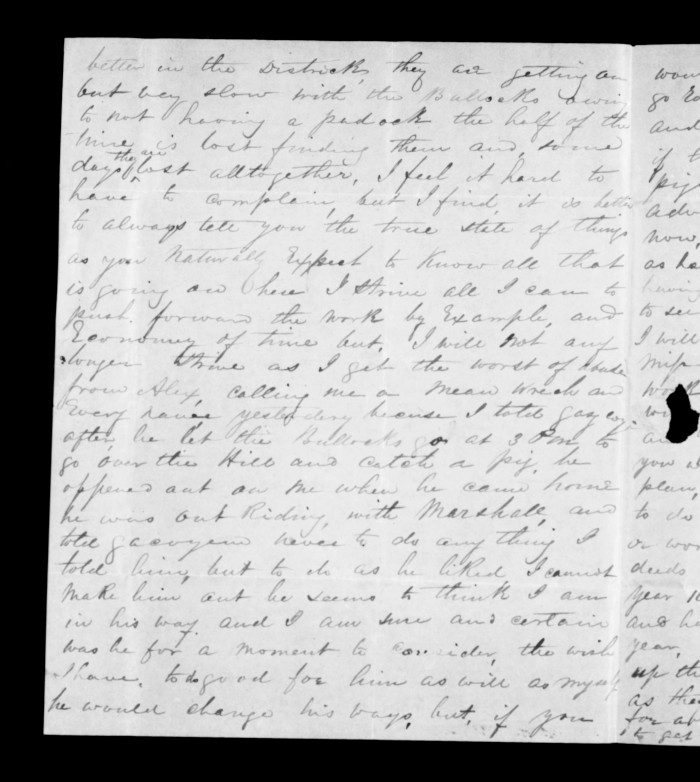 better in the Districk, they are getting on
but vey slow with the Bullocks owing
to not having a padock the half of the
time is lost finding them and, some
days they are lost alltogether, I feel it hard to
have to complain, but I find it is better
to always tell you the true state of things
as you Naturally Expect to Know all that
is going on here I Strive all I can to
push forward the work by Example, and
Economy of time but, I will not any
longer Strive as I get the worst of abuse
from Alex, calling me a mean wrech and
Every name yesterdery because I told
after, he let the Bullocks go at 3 Pm to
go over the Hill and catch a pig. he
oppened out on me when he came home
he was out Riding, with Marshall, and
told never to do any thing I
told him, but to do as he liked I cannot
make him out he seems to think I am
in his way and I am sure and certain
was he for a moment to consider, the wish
I have, to do good for him as will as myself
he would change his ways, but, if you
woul
go
and
if t
pig
adv
now,
as he
having
to see
I will
wor
wi
an
you
plan
to do
or wor
deeds
year
and he
year,
up the
as the
for
to get